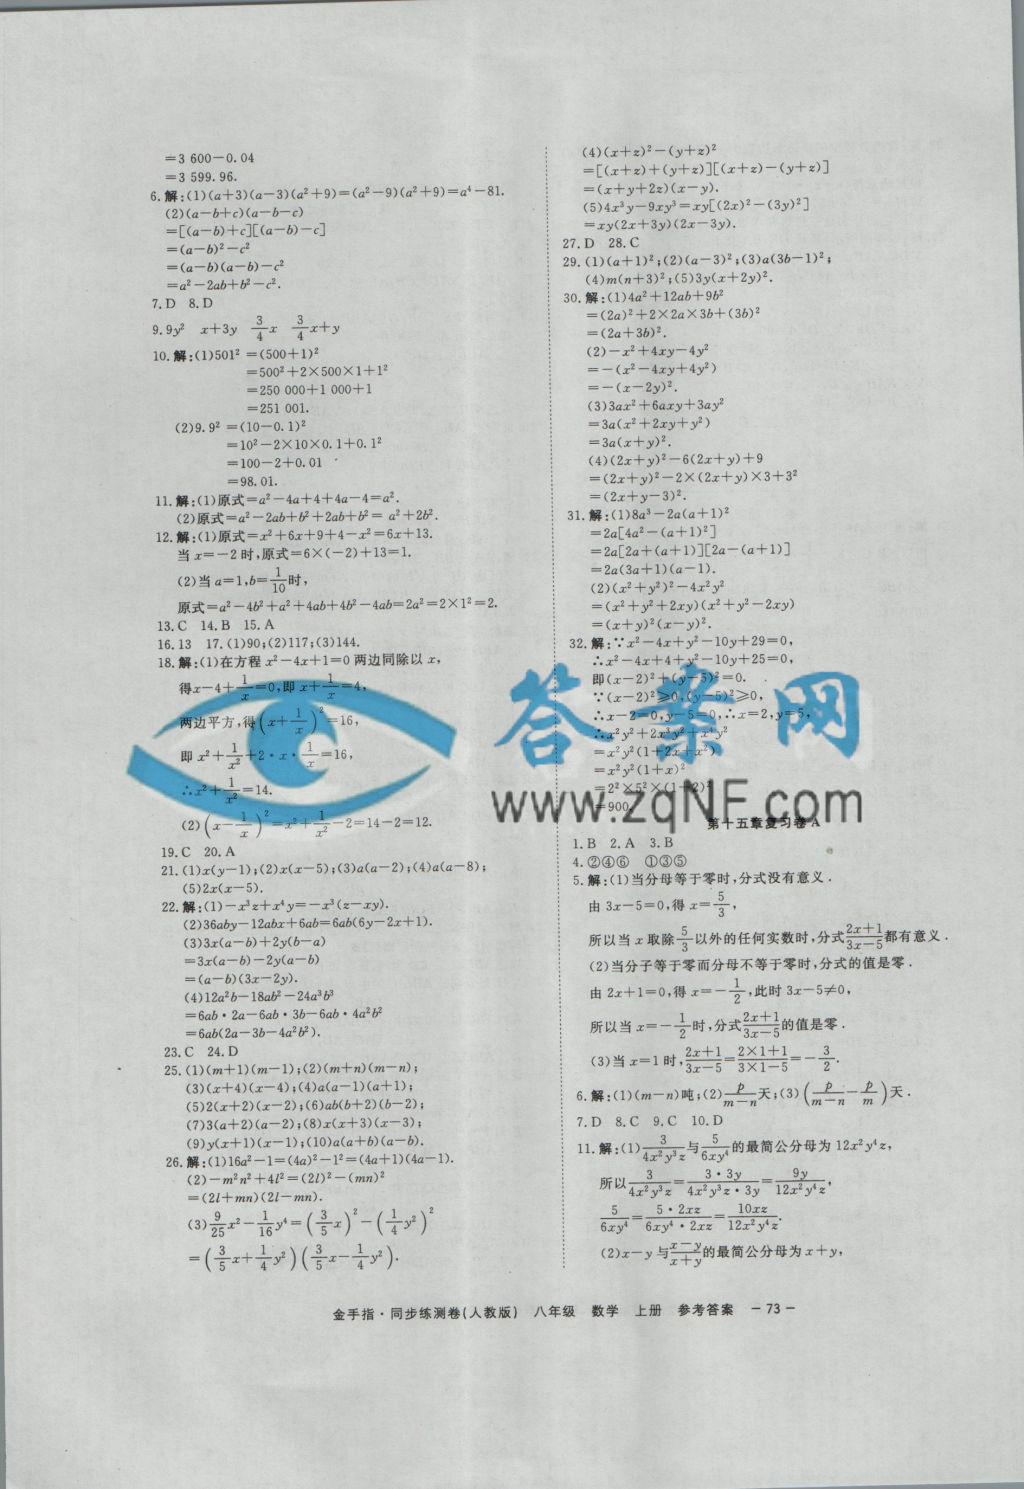 =3 600-0.04
=3 599.96.
6.解:(1)(a+3)(a-3)(a²+9)=(a²-9)(a²+9)=a⁴-81.
(2)(a-b+c)(a-b-c)
=[(a-b)+c][(a-b)-c]
=(a-b)²-c²
=(a-b)(a-b)-c²
=a²-2ab+b²-c².
7.D 8.D
9.9y² x+3y 3/4x 3/4x+y
10.解:(1)501²=(500+1)²
=500²+2×500×1+1²
=250 000+1 000+1
=251 001.
(2)9.9²=(10-0.1)²
=10²-2×10×0.1+0.1²
=100-2+0.01
=98.01.
11.解:(1)原式=a²-4a+4+4a-4=a².
(2)原式=a²-2ab+b²+2ab+b²=a²+2b².
12.解:(1)原式=x²+6x+9+4-x²=6x+13.
当x=-2时,原式=6×(-2)+13=1.
(2)当a=1,b=1/10时,
原式=a²-4b²+a²+4ab+4b²-4ab=2a²=2×1²=2.
13.C 14.B 15.A
16.13 17.(1)90;(2)117;(3)144.
18.解:(1)在方程x²-4x+1=0两边同除以x,
得x-4+1/x=0,即x+1/x=4,
两边平方,得(x+1/x)²=16,
即x²+1/x²+2·x·1/x=16,
∴x²+1/x²=14.
(2)(x-1/x)²=x²+1/x²-2=14-2=12.
19.C 20.A
21.(1)x(y-1);(2)x(x-5);(3)a(a-2);(4)a(a-8);
(5)2x(x-5).
22.解:(1)-x³z+x⁴y=-x³(z-xy).
(2)36aby-12abx+6ab=6ab(6y-2x+1).
(3)3x(a-b)+2y(b-a)
=3x(a-b)-2y(a-b)
=(a-b)(3x-2y).
(4)12a²b-18ab²-24a³b³
=6ab·2a-6ab·3b-6ab·4a²b²
=6ab(2a-3b-4a²b²).
23.C 24.D
25.(1)(m+1)(m-1);(2)(m+n)(m-n);
(3)(x+4)(x-4);(4)a(a-1)(a+1);
(5)2(x+2)(x-2);(6)ab(b+2)(b-2);
(7)3(a+2)(a-2);(8)x(x+3)(x-3);
(9)y(x+1)(x-1);(10)a(a+b)(a-b).
26.解:(1)16a²-1=(4a)²-1²=(4a+1)(4a-1).
(2)-m²n²+4l²=(2l)²-(mn)²
=(2l+mn)(2l-mn).
(3)9/25x²-1/16y⁴=(3/5x)²-(1/4y²)²
=(3/5x+1/4y²)(3/5x-1/4y²).
(4)(x+z)²-(y+z)²
=[(x+z)+(y+z)][(x+z)-(y+z)]
=(x+y+2z)(x-y).
(5)4x³y-9xy³=xy[(2x)²-(3y)²]
=xy(2x+3y)(2x-3y).
27.D 28.C
29.(1)(a+1)²;(2)(a-3)²;(3)a(3b-1)²;
(4)m(n+3)²;(5)3y(x+2y)².
30.解:(1)4a²+12ab+9b²
=(2a)²+2×2a×3b+(3b)²
=(2a+3b)².
(2)-x²+4xy-4y²
=-(x²-4xy+4y²)
=-(x-2y)².
(3)3ax²+6axy+3ay²
=3a(x²+2xy+y²)
=3a(x+y)².
(4)(2x+y)²-6(2x+y)+9
=(2x+y)²-2×(2x+y)×3+3²
=(2x+y-3)².
31.解:(1)8a³-2a(a+1)²
=2a[4a²-(a+1)²]
=2a[2a+(a+1)][2a-(a+1)]
=2a(3a+1)(a-1).
(2)(x²+y²)²-4x²y²
=(x²+y²+2xy)(x²+y²-2xy)
=(x+y)²(x-y)².
32.解:∵x²-4x+y²-10y+29=0,
∴x²-4x+4+y²-10y+25=0,
即(x-2)²+(y-5)²=0.
∵(x-2)²≥0,(y-5)²≥0,
∴x-2=0,y-5=0,∴x=2,y=5,
∴x²y²+2x³y²+x⁴y²
=x²y²(1+2x+x²)
=x²y²(1+x)²
=2²×5²×(1+2)²
=900.
答案网
www.zqNF.com
第十五章复习卷A
1.B 2.A 3.B
4.②④⑥ ①③⑤
5.解:(1)当分母等于零时,分式没有意义.
由3x-5=0,得x=5/3,
所以当x取除5/3以外的任何实数时,分式(2x+1)/(3x-5)都有意义.
(2)当分子等于零而分母不等于零时,分式的值是零.
由2x+1=0,得x=-1/2,此时3x-5≠0,
所以当x=-1/2时,分式(2x+1)/(3x-5)的值是零.
(3)当x=1时,(2x+1)/(3x-5)=(2×1+1)/(3×1-5)=-3/2.
6.解:(1)(m-n)吨;(2)p/(m-n)天;(3)(p/(m-n)-p/m)天.
7.D 8.C 9.C 10.D
11.解:(1)3/(4x²y³z)与5/(6xy⁴)的最简公分母为12x²y⁴z,
所以3/(4x²y³z)=(3·3y)/(4x²y³z·3y)=9y/(12x²y⁴z),
5/(6xy⁴)=(5·2xz)/(6xy⁴·2xz)=10xz/(12x²y⁴z).
(2)x-y与(x-y)/(x+y)的最简公分母为x+y,
金手指·同步练测卷(人教版) 八年级 数学 上册 参考答案 -73-